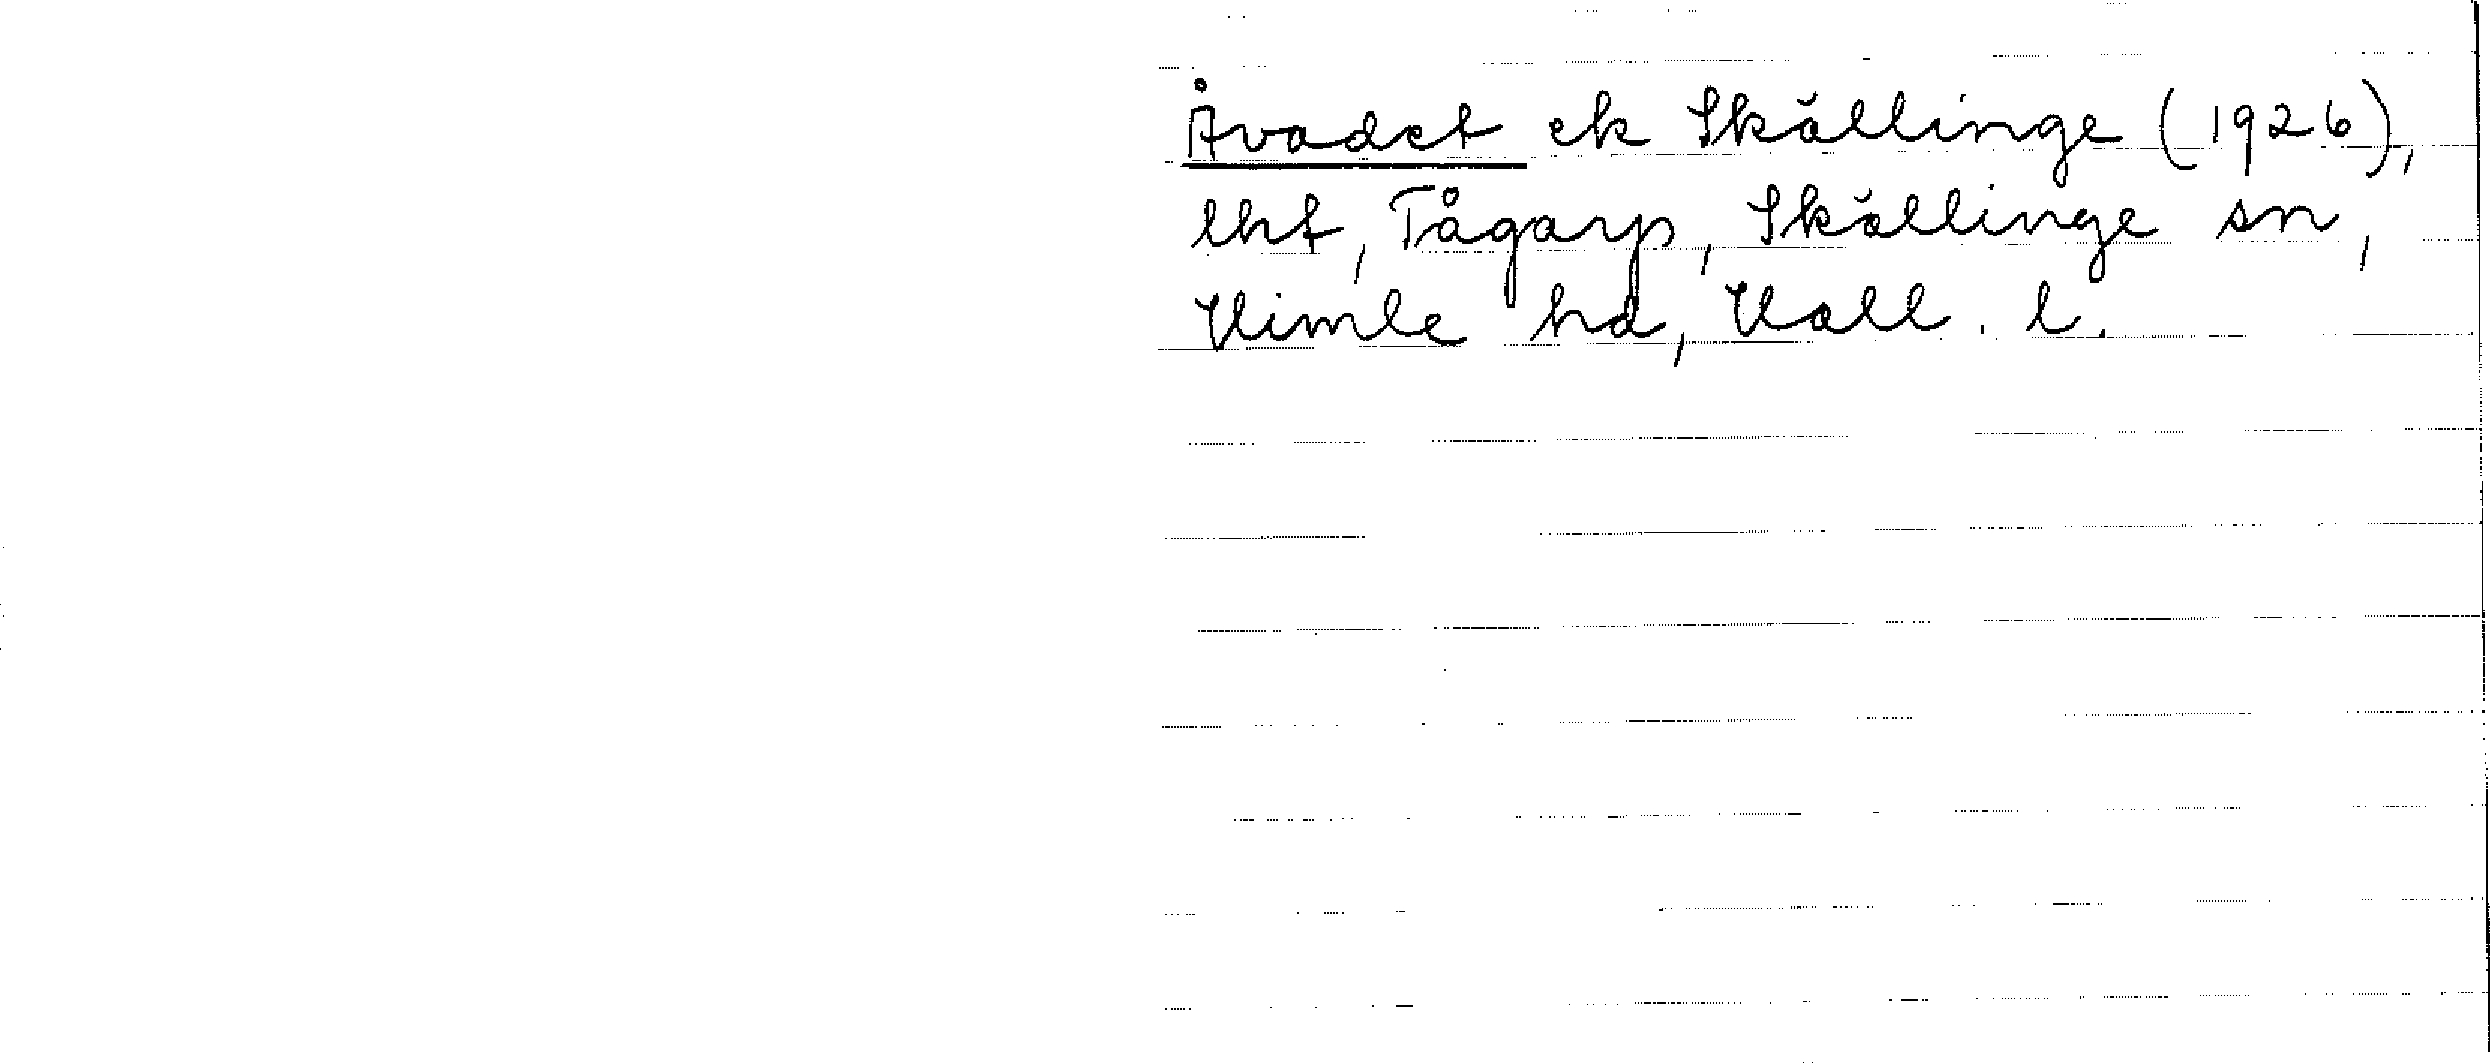 Åvadet ek Skällinge (1926),
lht, Tågarp, Skällinge sn,
Himle hd, Hall. l.